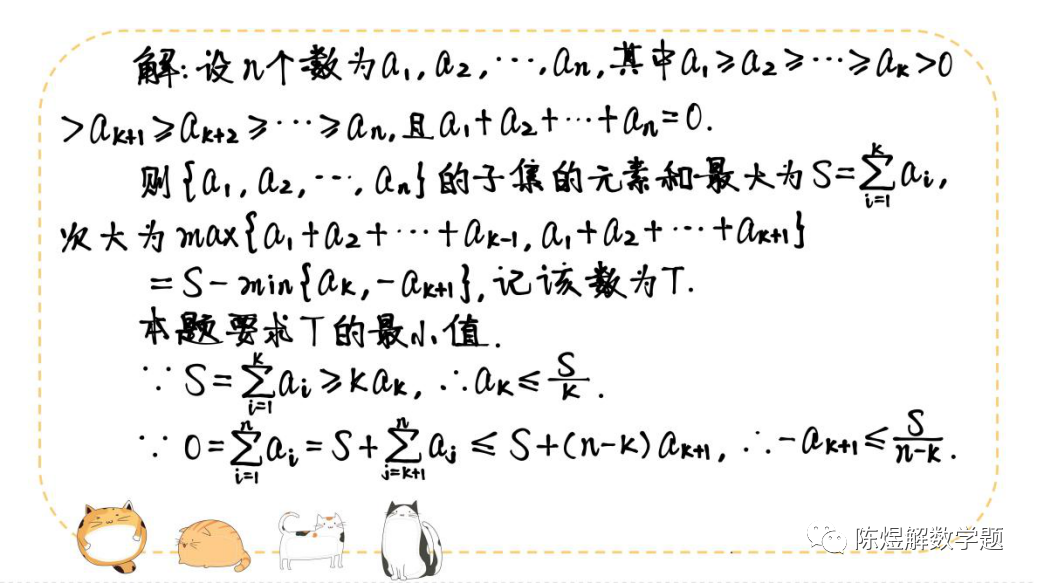 解:设n个数为a₁,a₂,⋯,aₙ,其中a₁≥a₂≥⋯≥aₖ>0
>aₖ₊₁≥aₖ₊₂≥⋯≥aₙ,且a₁+a₂+⋯+aₙ=0.
则{a₁,a₂,⋯,aₙ}的子集的元素和最大为S=∑_{i=1}^{k}aᵢ,
次大为max{a₁+a₂+⋯+aₖ₋₁,a₁+a₂+⋯+aₖ₊₁}
=S-min{aₖ,-aₖ₊₁},记该数为T.
本题要求T的最小值.
∵ S=∑_{i=1}^{k}aᵢ≥kaₖ,∴aₖ≤S/k.
∵ 0=∑_{i=1}^{n}aᵢ=S+∑_{j=k+1}^{n}aⱼ≤S+(n-k)aₖ₊₁,∴-aₖ₊₁≤S/(n-k).
陈煜解数学题